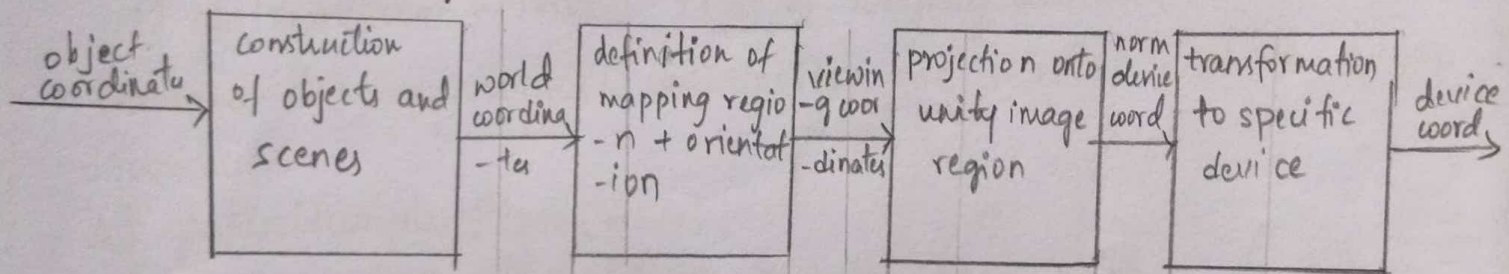 object
coordinate
construction
of objects and
scenes
world
coordina
-tes
definition of
mapping regio
-n + orientat
-ion
viewin
-g coor
-dinates
projection onto
unity image
region
norm
device
coord
transformation
to specific
device
device
coord